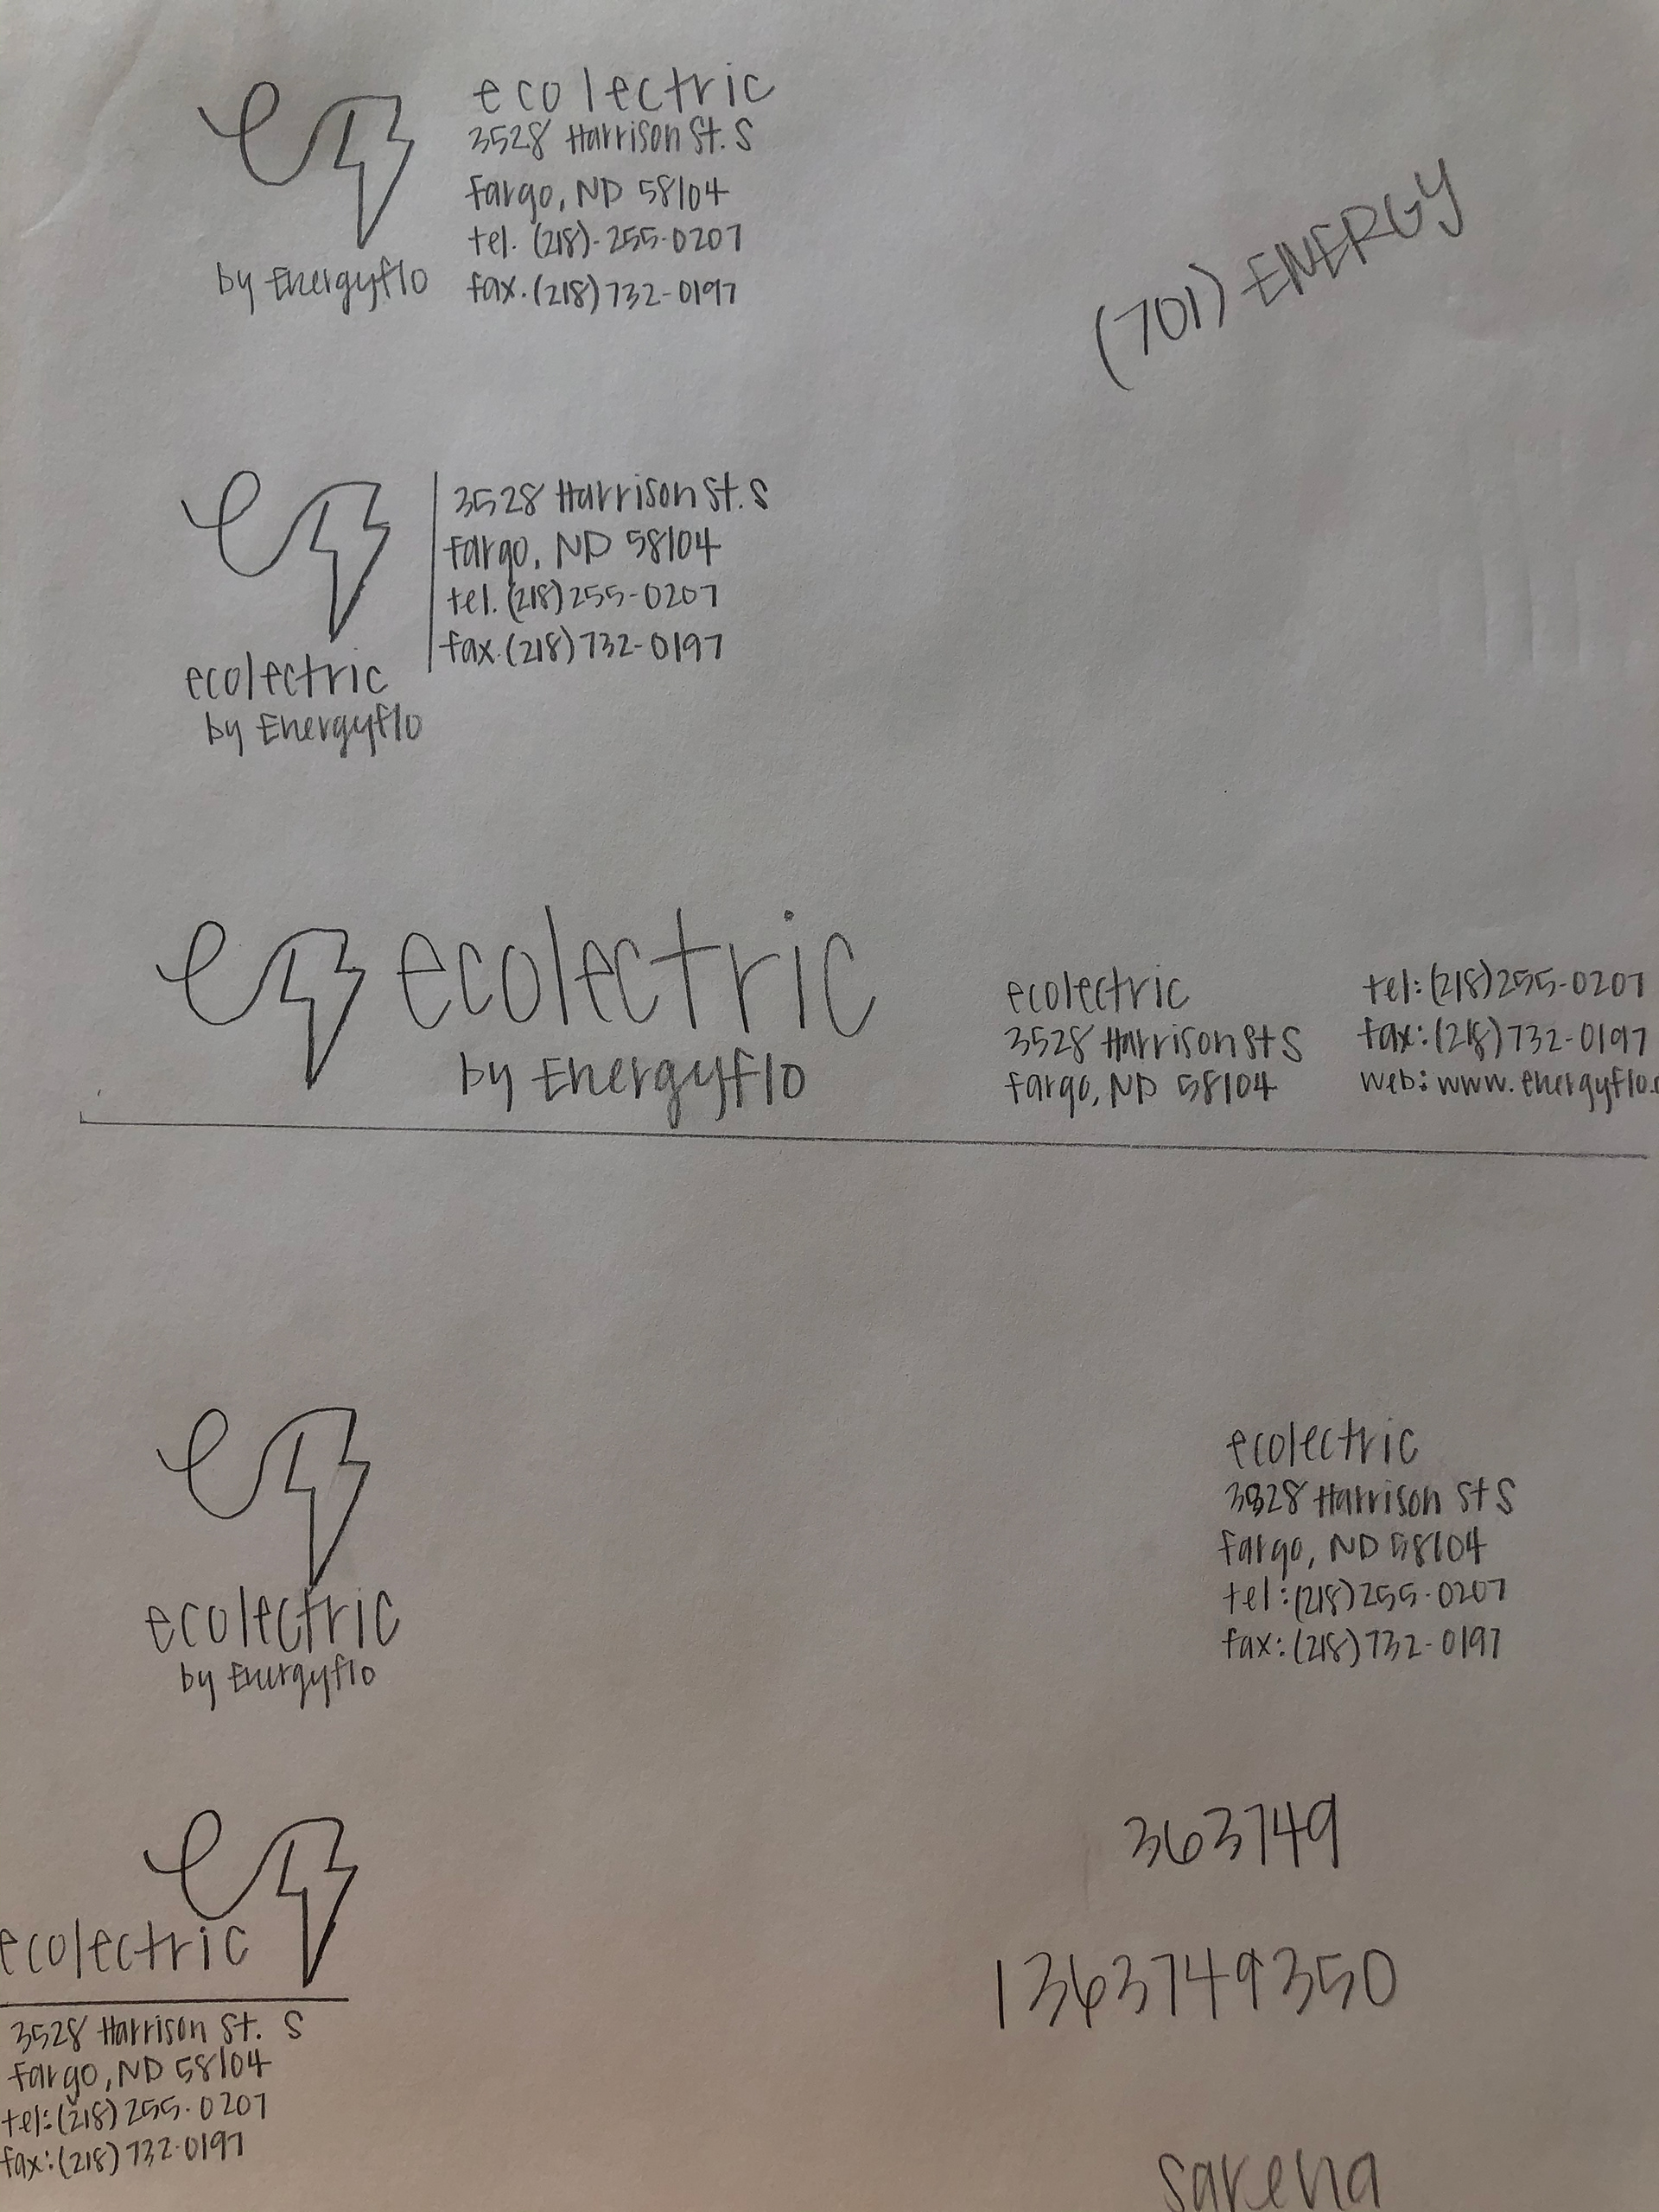 ecolectric
3528 Harrison St. S
Fargo, ND 58104
tel. (218)-255-0207
fax. (218) 732-0197
by Energyflo
(701) ENERGY
3528 Harrison St. S
Fargo, ND 58104
tel. (218) 255-0207
fax. (218) 732-0197
ecolectric
by Energyflo
ecolectric
by Energyflo
ecolectric
3528 Harrison St S
Fargo, ND 58104
tel: (218) 255-0207
fax: (218) 732-0197
web: www.energyflo.
ecolectric
by Energyflo
ecolectric
3528 Harrison St S
Fargo, ND 58104
tel: (218) 255-0207
fax: (218) 732-0197
ecolectric
3528 Harrison St. S
Fargo, ND 58104
tel: (218) 255-0207
fax: (218) 732-0197
363749
1363749350
sarena